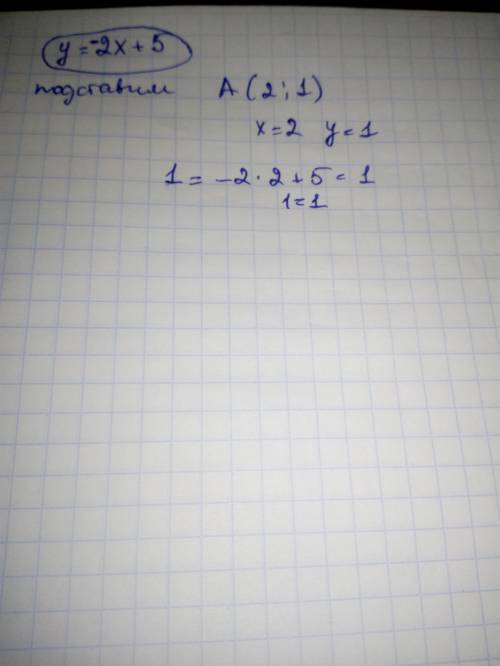 y = -2x + 5
подставим A (2; 1)
x = 2 y = 1
1 = -2 · 2 + 5 = 1
1 = 1